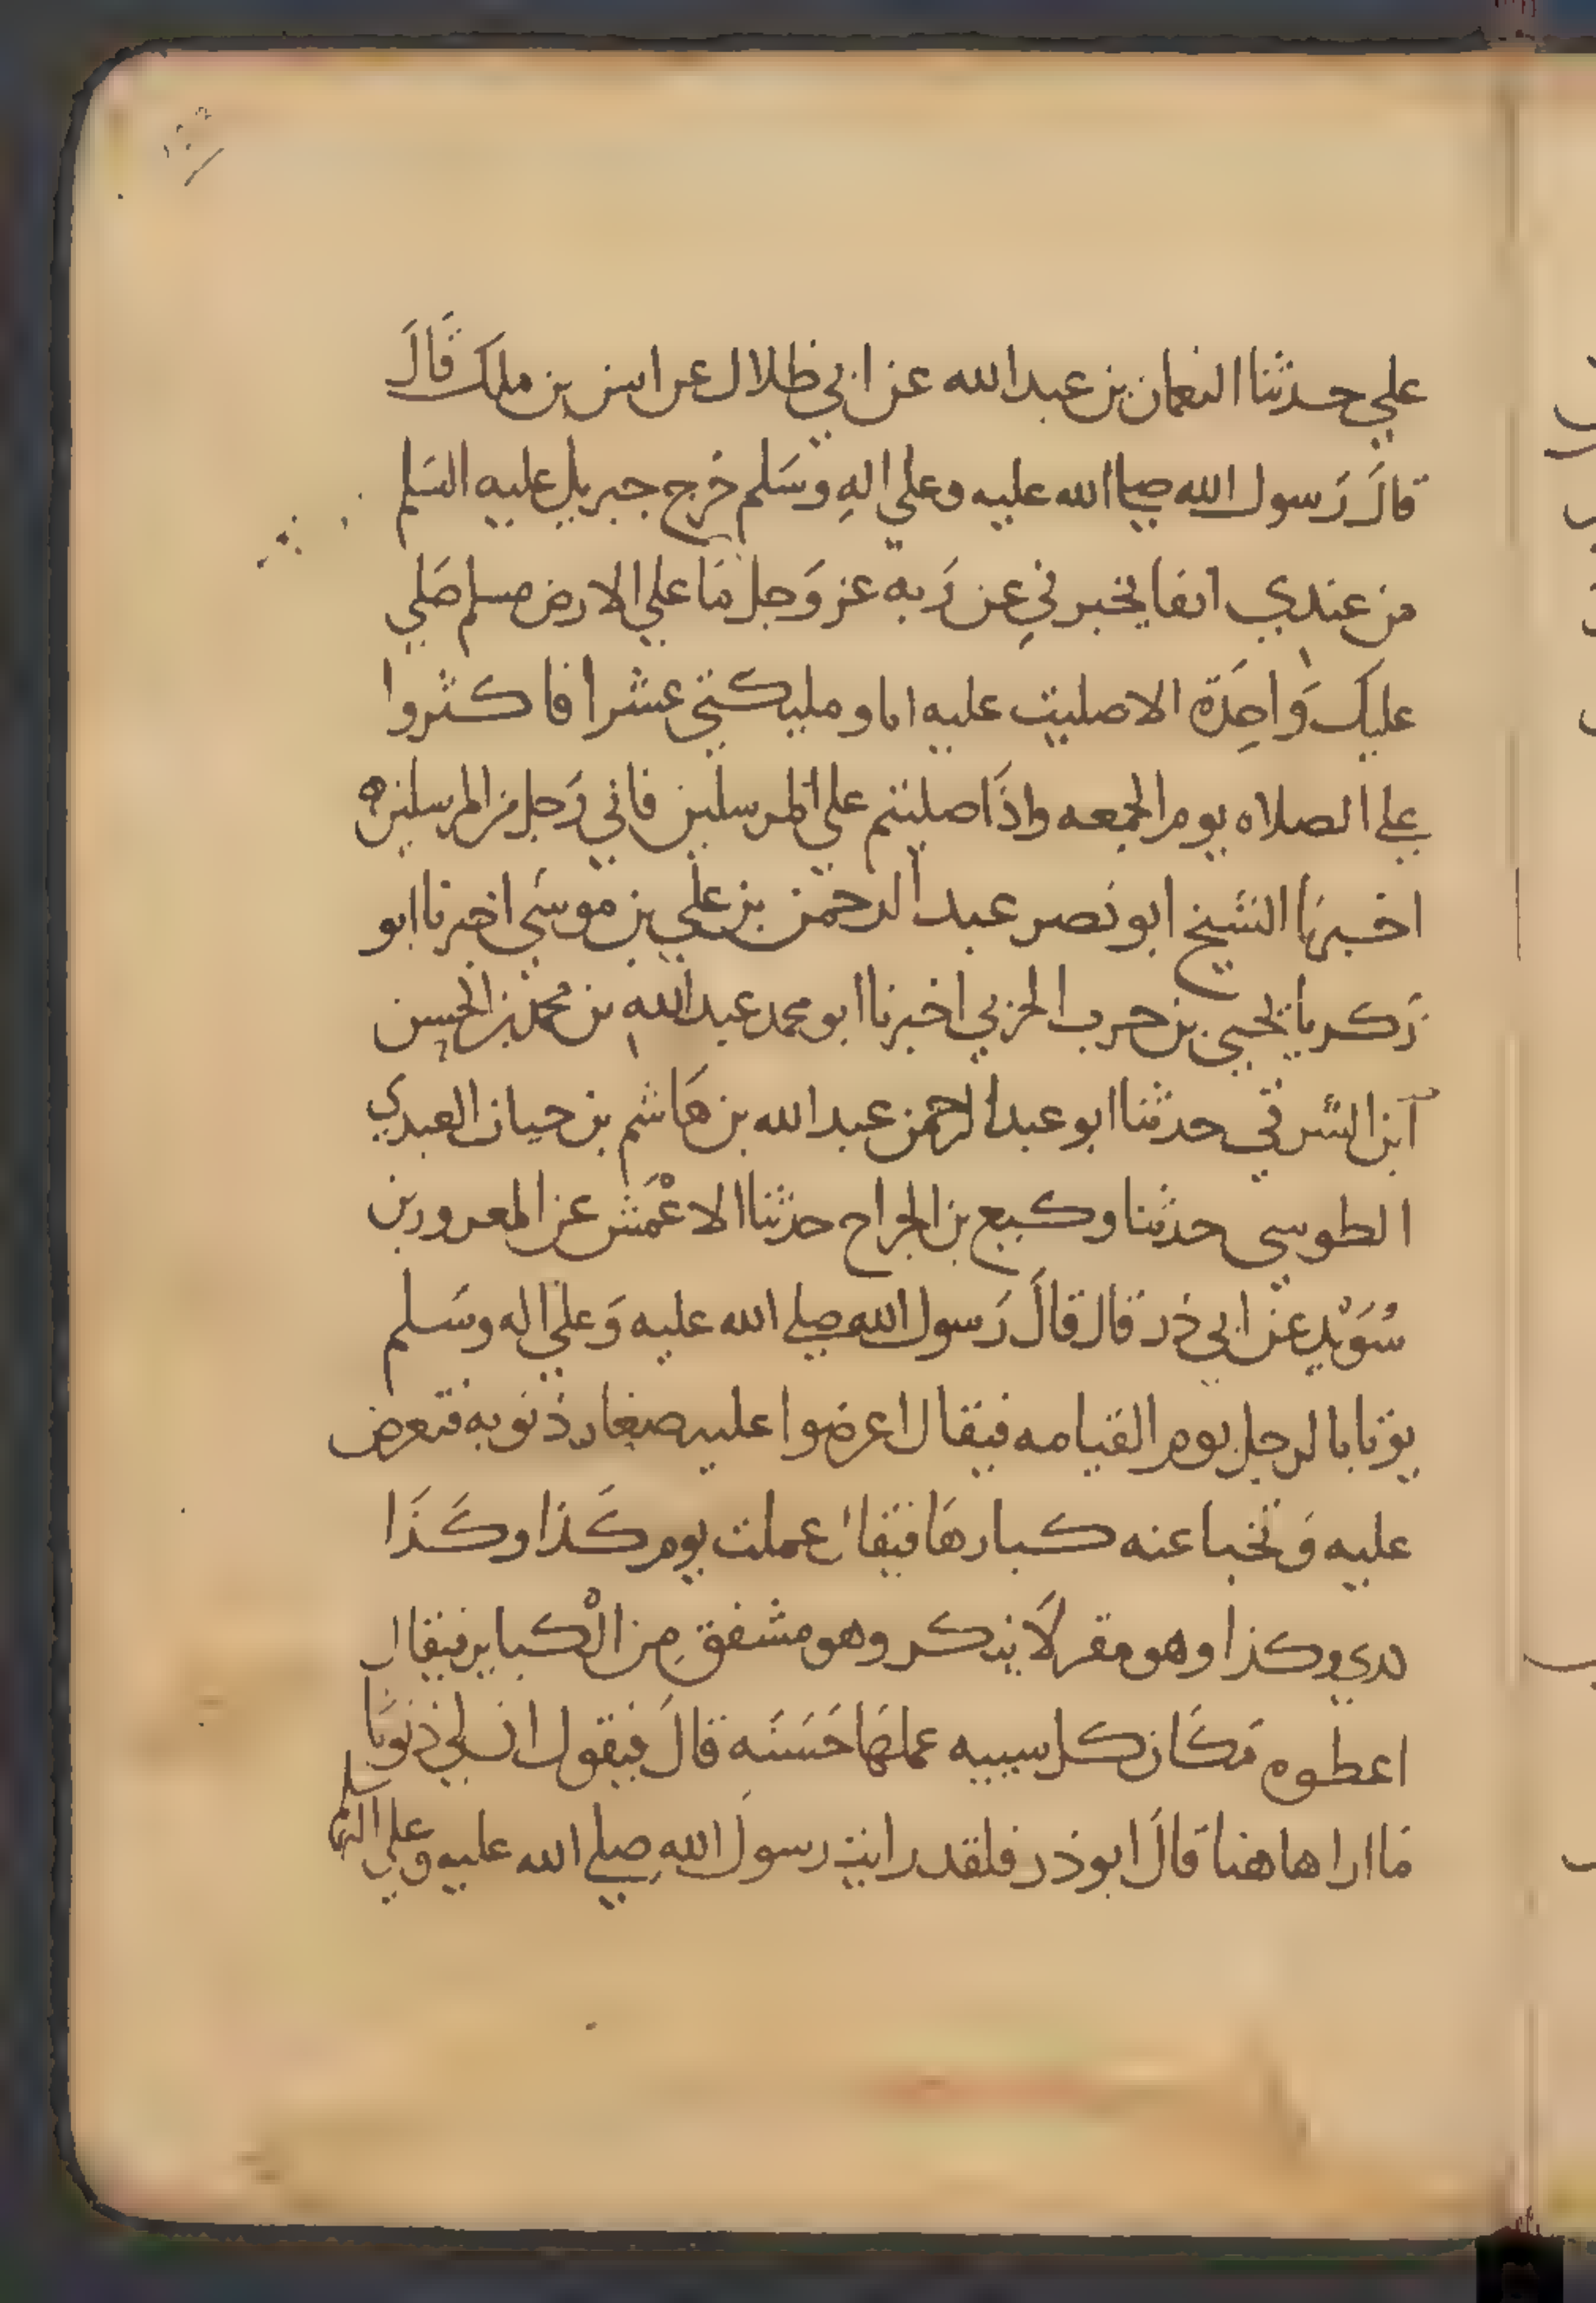 علي حدثنا النعمان بن عبد الله عن ابي ظلال عن انس بن ملك قَالَ
قالَ رَسول الله صلى الله عليه وعلي الهِ وسَلم خرج جبريل عليه السَلم
من عندي انفا يخبرني عن رَبه عز وَجل مَا علي الارض مسلم صَلي
عليكَ وَاحِدَة الا صليت عليه انا ومليكتي عشرا فاكثروا
علي الصلاه يوم الجمعه واذَا صليتم علي المرسلين فاني رَجل من المرسلين ه
اخبرنا الشيخ ابو نصر عبد الرحمن بن علي بن موسَي اخبرنا ابو
زَكريا يحيي بن حرب الحربي اخبرنا ابو محمد عبد اللهِ بن محمد بن الحسن
ابن الشرقي حدثنا ابو عبد الرحمن عبد الله بن هَاشم بن حيان العبدي
الطوسي حدثنا وكيع بن الجراح حدثنا الاعْمَش عن المعرور بن
سُوَيْد عن ابي ذر قال قالَ رَسول الله صلي الله عليه وَعلي اله وسَلم
يؤتا بالرجل يوم القيامه فيقال اعرضوا عليه صغار ذنوبه فتعرض
عليه وَتخبا عنه كبارهَا فيقال عملت يوم كَذا وكَذَا
كذي وكذا وهو مقر لَا ينكر وهو مشفق مِن الْكباير فيقال
اعطوه مَكَان كل سييه عملهَا حَسَنَه قالَ فيقول ان لي ذنوبَا
مَا اراها هنا قالَ ابو ذر فلقد رايت رسولَ الله صلي الله عليه وعلي اله وسلم